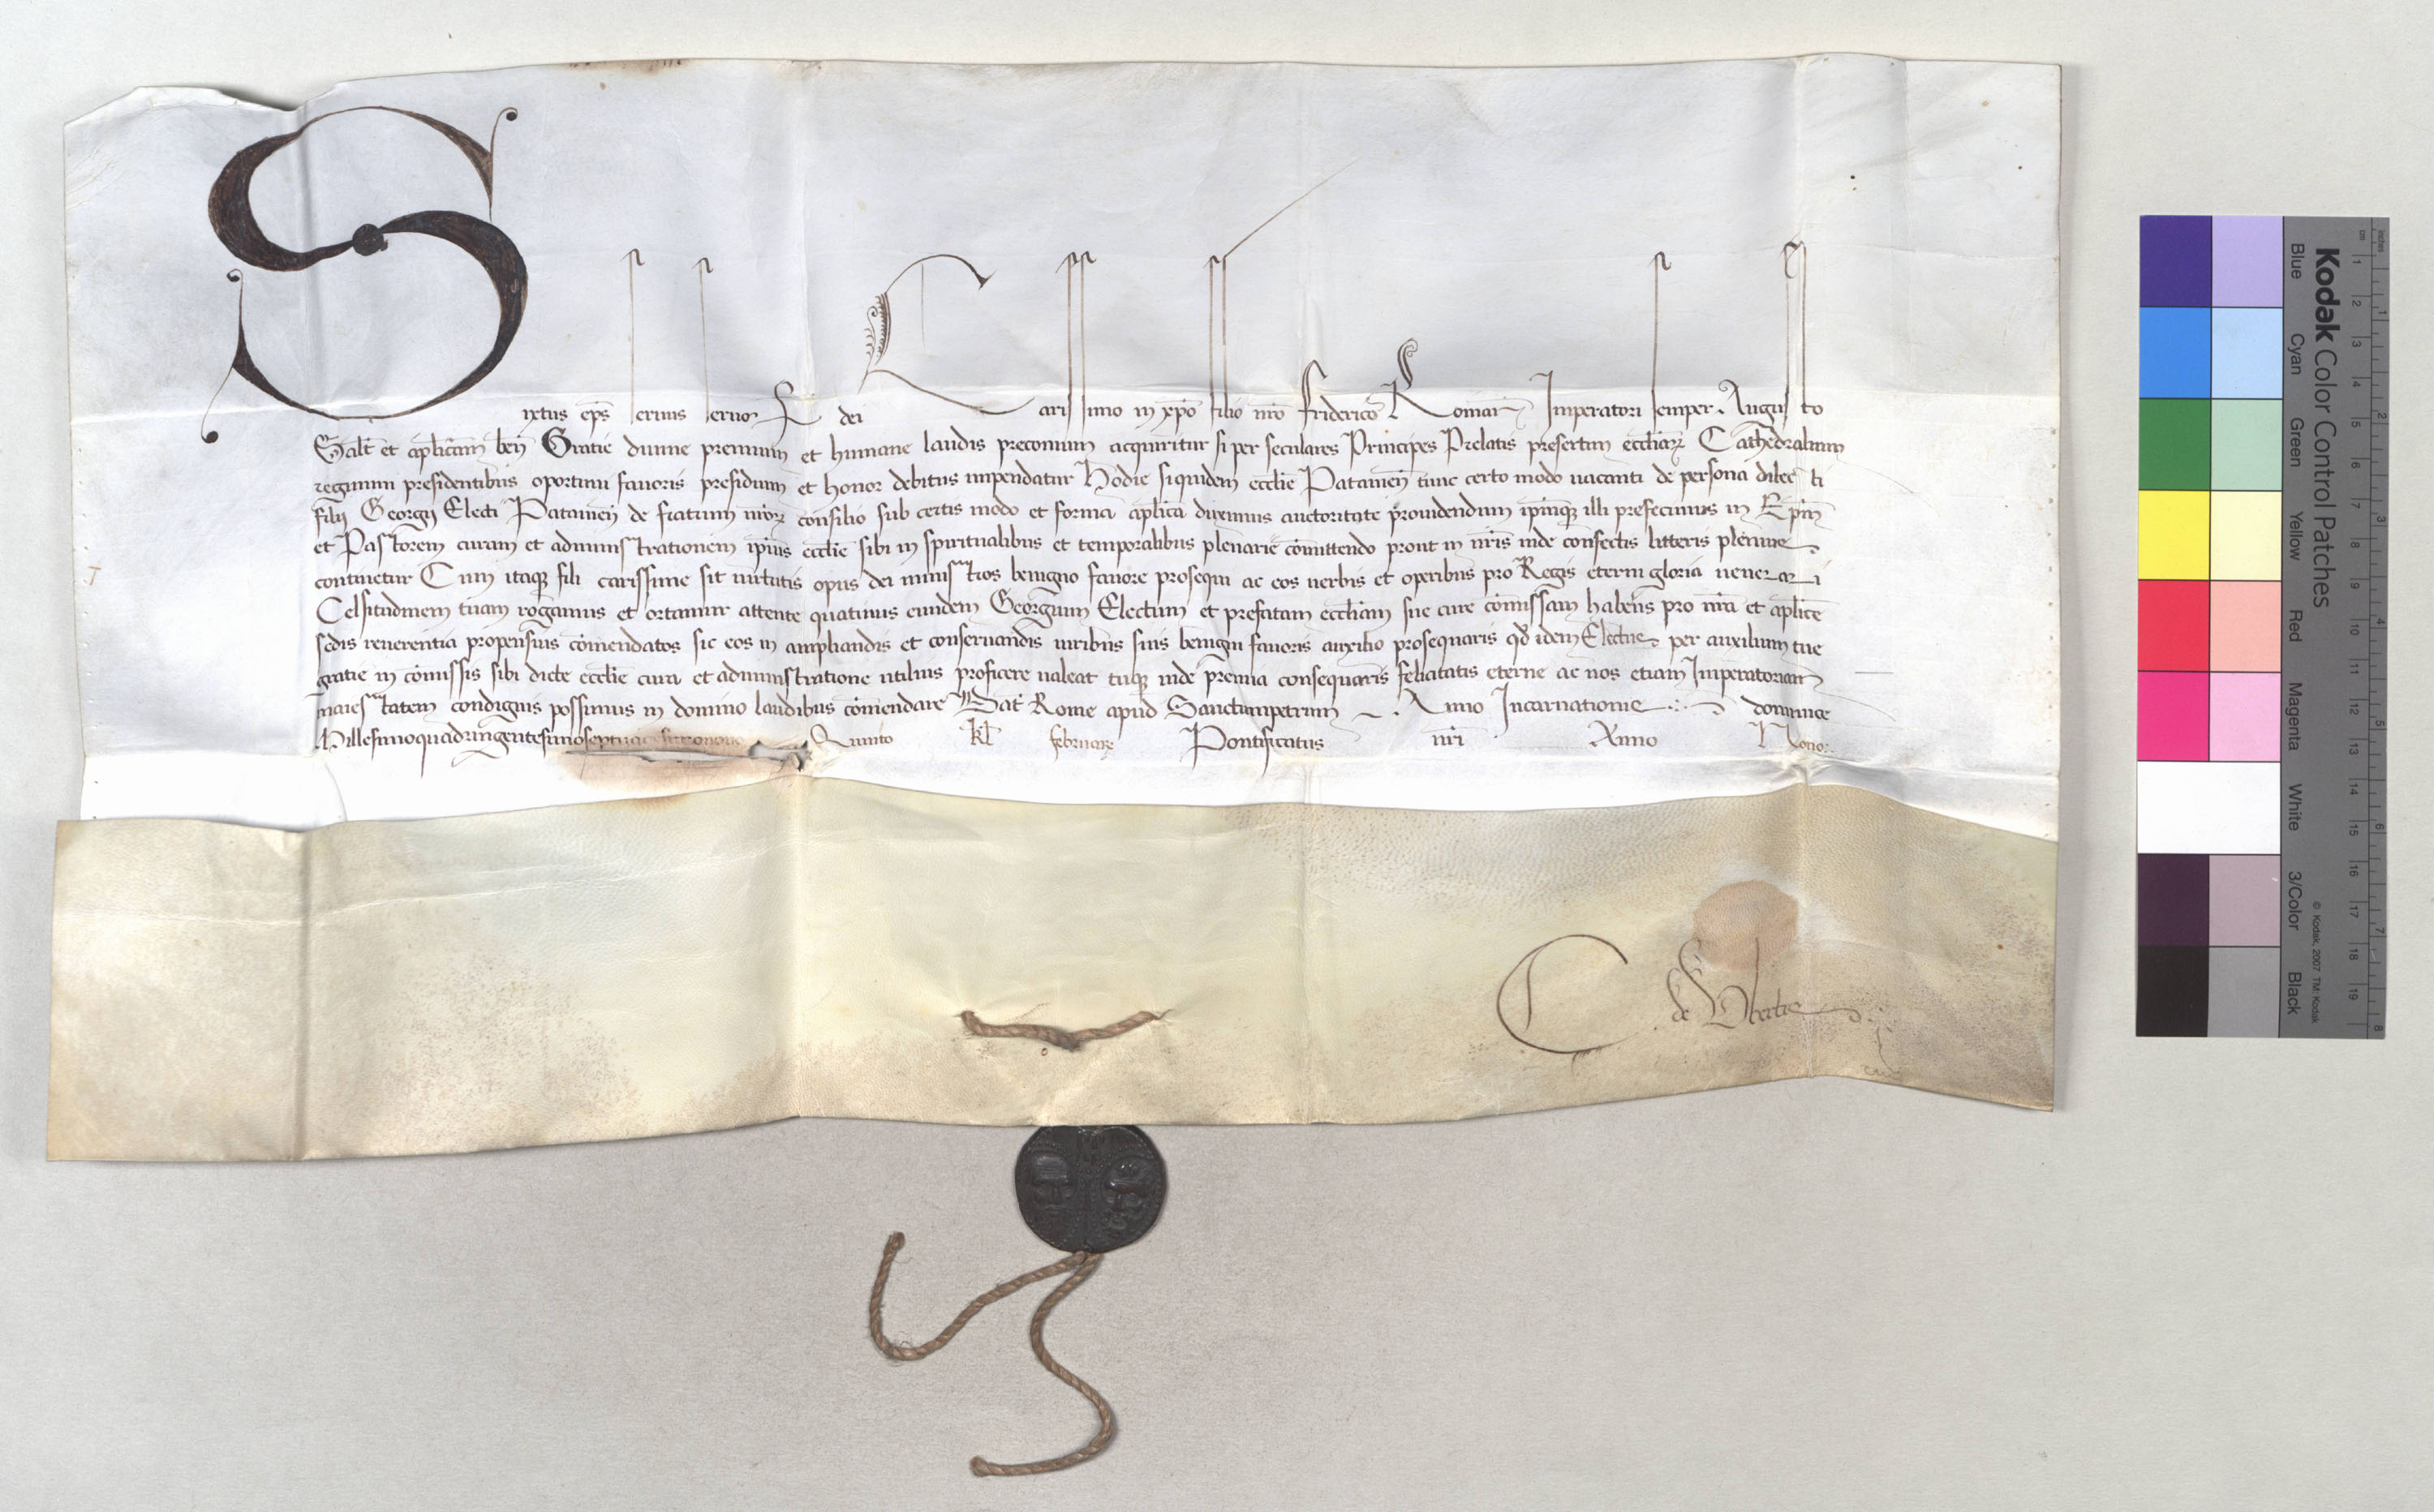 Sixtus ep̄s seruus seruoꝝ dei Carissimo in xp̄o filio nr̄o friderico Romanoꝝ Imperatori semper Augusto
Salt̄ et aplicam ben̄ Gratie diuine premium et humane laudis preconium acquiritur si per seculares Principes Prelatis presertim eccliaꝝ Cathedralium
regimini presidentibus oportuni fauoris presidium et honor debitus impendatur Hodie siquidem ecclie Patauien̄ tunc certo modo uacanti de persona dilecti
filij Georgij Electi Patauien̄ de fratrum nr̄oꝝ consilio sub certis modo et forma aplica duximus auctoritate prouidendum ip̄mqꝫ illi prefecimus in Ep̄m
et Pastorem curam et administrationem ip̄ius ecclie sibi in spiritualibus et temporalibus plenarie cōmittendo prout in nr̄is inde confectis litteris plenius
continetur Cum itaqꝫ fili carissime sit uirtutis opus dei ministros benigno fauore prosequi ac eos uerbis et operibus pro Regis eterni gloria uenerari
Celsitudinem tuam rogamus et ortamur attente quatinus eundem Georgium Electum et prefatam eccliam sue cure cōmissam habens pro nr̄a et aplice
sedis reuerentia propensius cōmendatos sic eos in ampliandis et conseruandis iuribus suis benigni fauoris auxilio prosequaris qđ idem Electus per auxilium tue
gratie in cōmissis sibi dicte ecclie cura et administratione utilius proficere ualeat tuqꝫ inde premia consequaris felicitatis eterne ac nos etiam Imperatoriam
maiestatem condignis possimus in domino laudibus cōmendare Dat̄ Rome apud Sanctumpetrum Anno Incarnationis dominice
Millesimoquadringentesimoseptuagesimonono Quinto kl̄ februarij Pontificatus nr̄i Anno Nono
C de
Kodak Color Control Patches
Blue Cyan Green Yellow Red Magenta White 3/Color Black
© Kodak, 2007 TM: Kodak
cm 1 2 3 4 5 6 7 8 9 10 11 12 13 14 15 16 17 18 19
inches 1 2 3 4 5 6 7 8